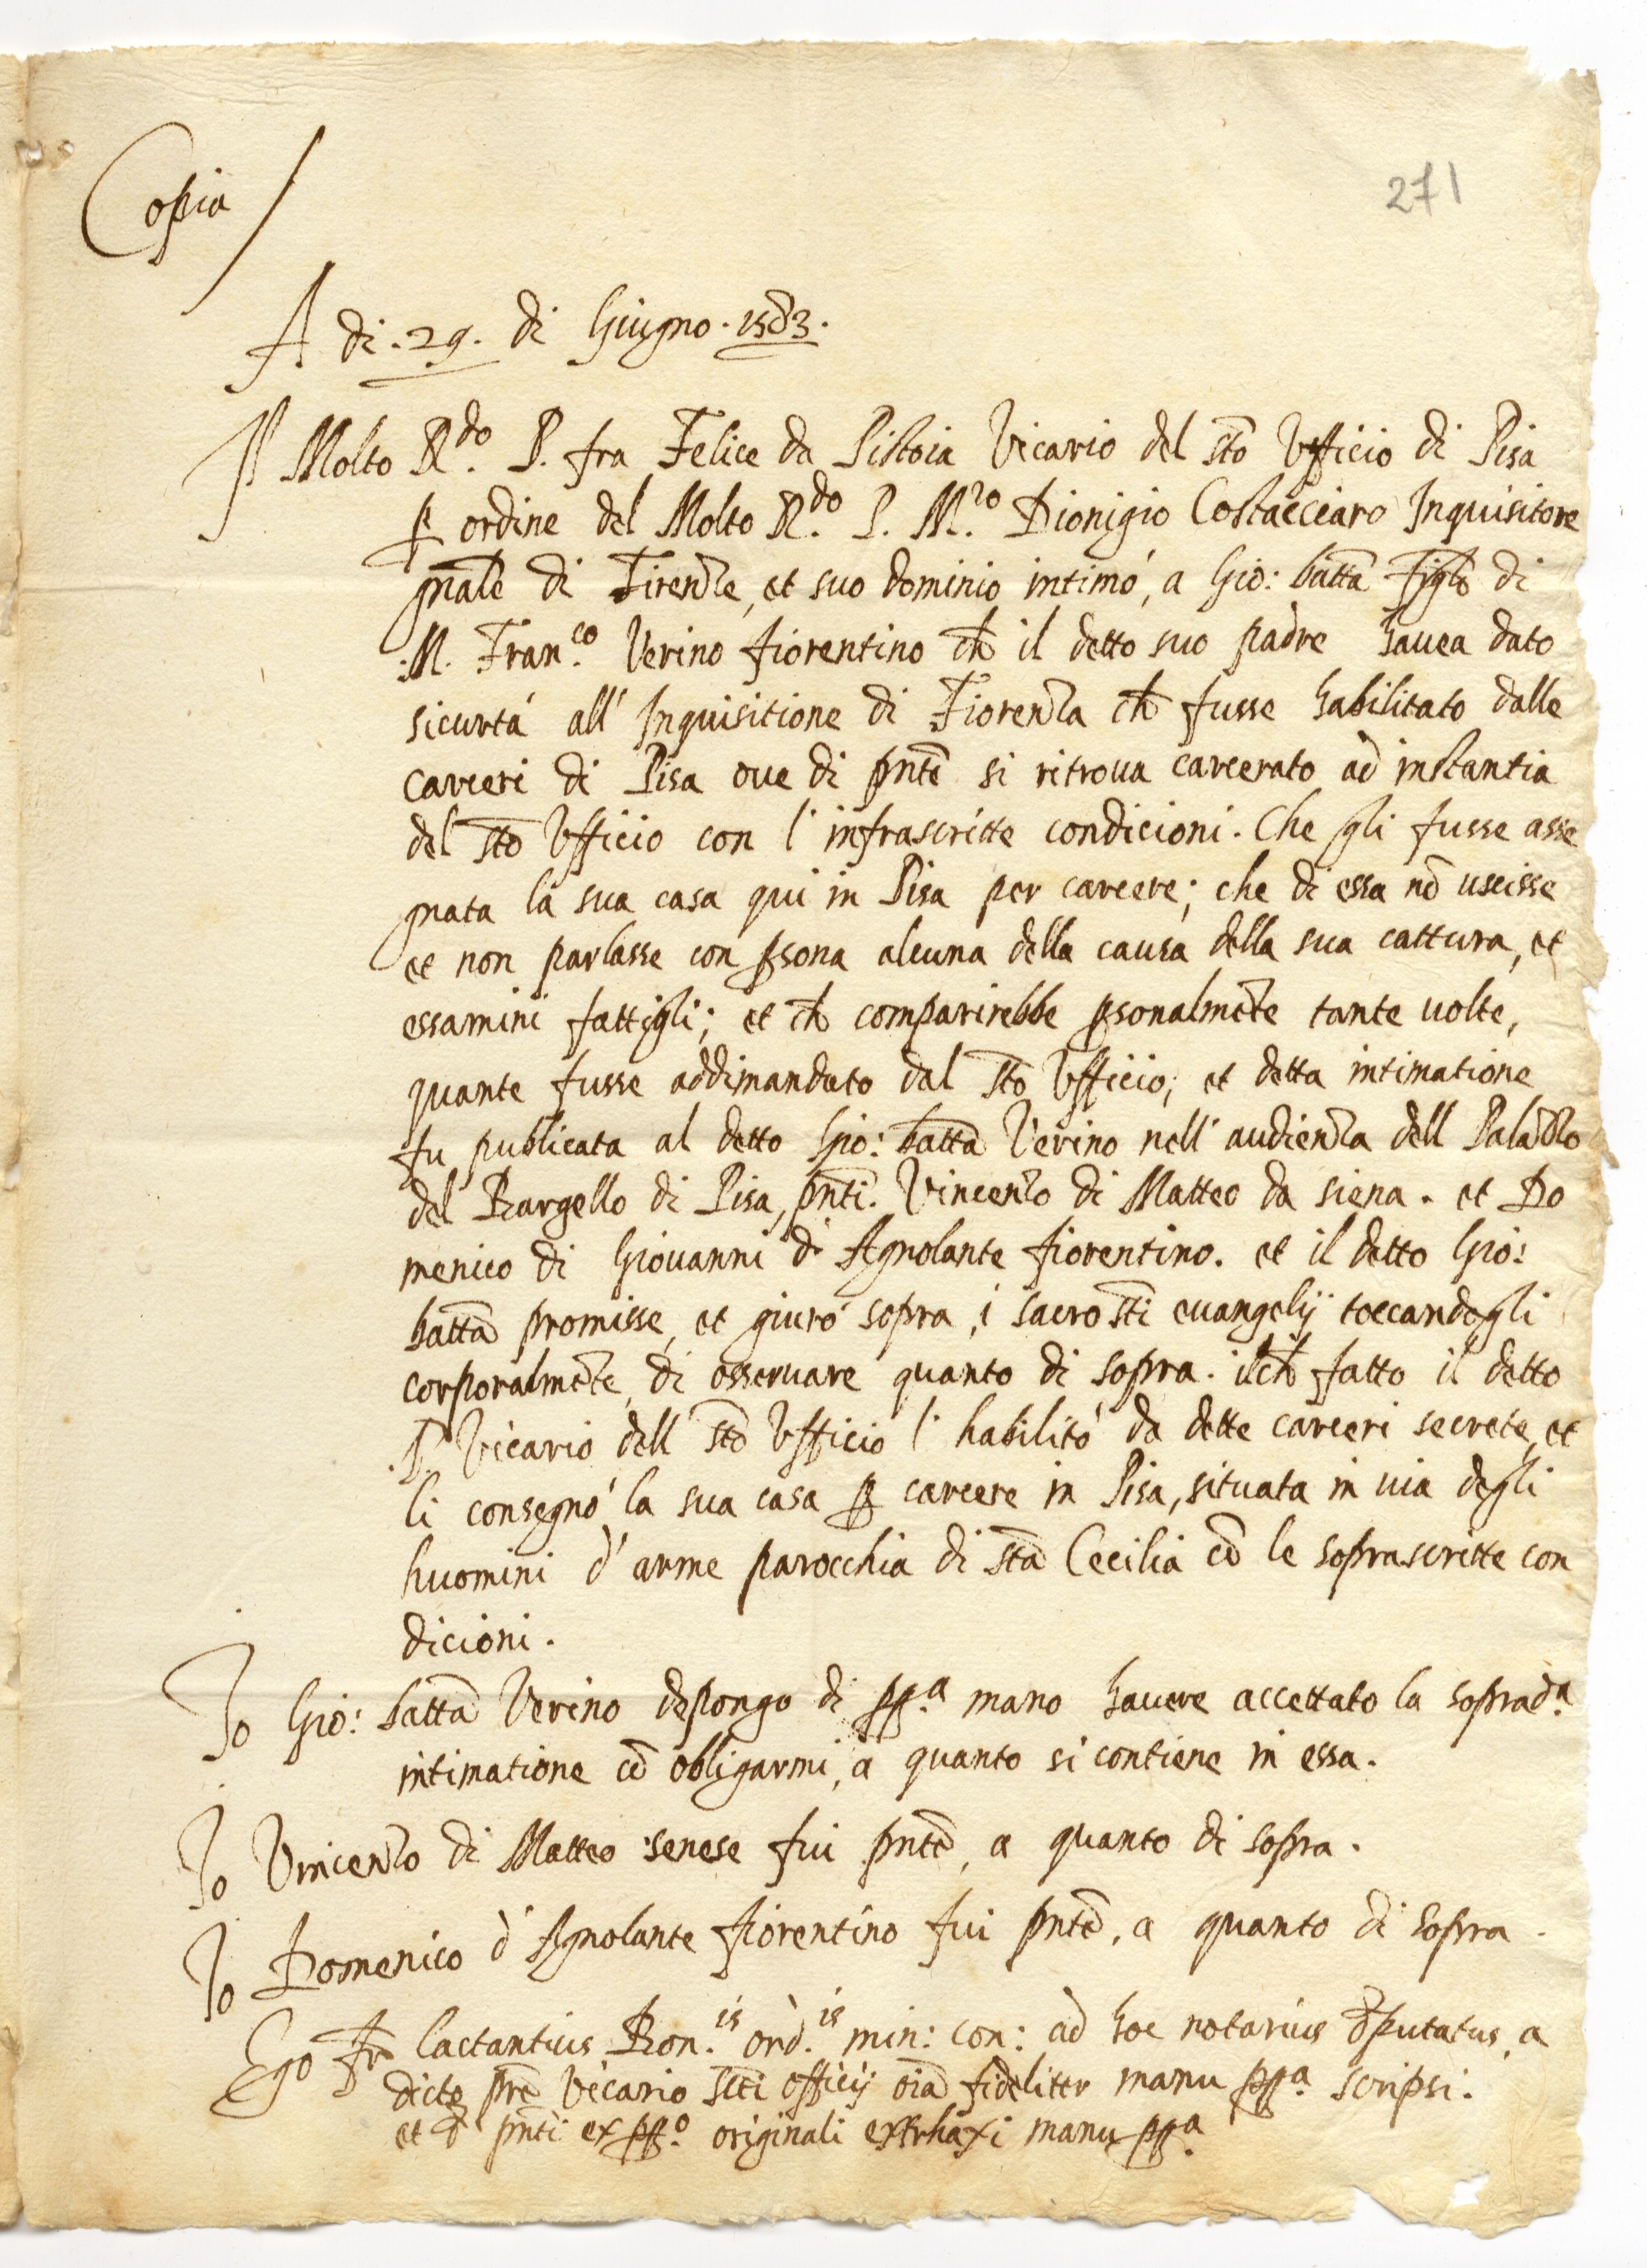 Copia /
271
A di .29. di Giugno .1583.
Il Molto R.do P. fra Felice da Pistoia Vicario del sto Ufficio di Pisa
p ordine del Molto R.do P. M.ro Dionigio Costacciaro Inquisitore
gnale di Firenze, et suo dominio intimó, a Gio: batta figlo di
.M. Fran.co Verino fiorentino ch il detto suo padre havea dato
sicurtá all' Inquisitione di Fiorenza ch fusse habilitato dalle
carceri di Pisa ove di pnte si ritrova carcerato ad instantia
del sto Ufficio con l'infrascritte condicioni. Che gli fusse asse
gnata la sua casa qui in Pisa per carcere; che di essa nō uscisse
et non parlasse con psona alcuna della causa della sua cattura, et
essamini fattigli; et ch comparirebbe psonalmēte tante volte,
quante fusse addimandato dal sto Ufficio; et detta intimatione
fu publicata al detto Gio: batta Verino nell' audienza dell Palazzo
del Bargello di Pisa, pnti. Vincenzo di Matteo da siena. et Do
menico di Giovanni d' Agnolante fiorentino. et il detto Gio:
batta promisse, et giuró sopra, i sacro sti evangelij toccandogli
corporalmēte, di osservare quanto di sopra. ilch fatto il detto
.P. Vicario dell sto Ufficio l'habilitó da dette carceri secrete, et
li consegnó la sua casa p carcere in Pisa, situata in via degli
huomini d'arme parocchia di sta Cecilia cō le soprascritte con
dicioni.
Io Gio: batta Verino depongo di pp.a mano havere accettato la soprad.a
intimatione cō obligarmi, a quanto si contiene in essa.
Io Vincenzo di Matteo senese fui pnte, a quanto di sopra.
Io Domenico d' Agnolante fiorentino fui pnte, a quanto di sopra.
Ego fr Lactantius Bon.is ord.is min: con: ad hoc notarius dputatus, a
dicto pre Vicario Scti officij oia fideliter manu pp.a scripsi.
et pnti ex pp.o originali extrhaxi manu pp.a